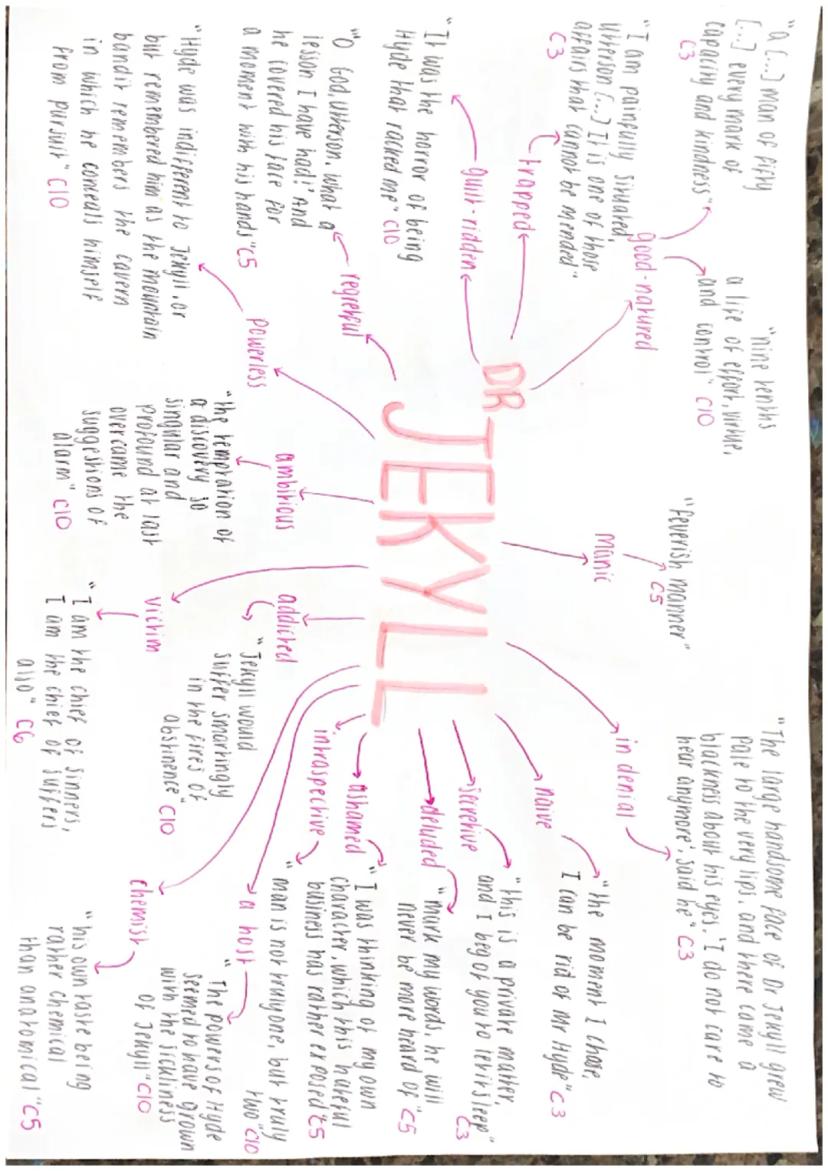 DR
JEKYLL
good-natured
"a [...] man of fifty
[...] every mark of
capacity and kindness"
C3
"nine tenths
a life of effort, virtue,
and control" C10
manic
"feverish manner"
C5
in denial
"The large handsome face of Dr Jekyll grew
pale to the very lips, and there came a
blackness about his eyes. 'I do not care to
hear anymore', said he" C3
naive
"the moment I chose,
I can be rid of Mr Hyde" C3
secretive
"this is a private matter,
and I beg of you to let it sleep"
C3
deluded
"mark my words, he will
never be more heard of" C5
ashamed
"I was thinking of my own
character, which this hateful
business has rather exposed" C5
introspective
"man is not truly one, but truly
two" C10
a host
"The powers of Hyde
seemed to have grown
with the sickliness
of Jekyll" C10
chemist
"his own taste being
rather chemical
than anatomical" C5
addicted
"Jekyll would
suffer smartingly
in the fires of
abstinence"
C10
victim
"I am the chief of sinners,
I am the chief of suffers
also" C6
ambitious
"the temptation of
a discovery so
singular and
profound at last
overcame the
suggestions of
alarm" C10
powerless
"Hyde was indifferent to Jekyll, or
but remembered him as the mountain
bandit remembers the cavern
in which he conceals himself
from pursuit" C10
regretful
"'O God, Utterson, what a
lesson I have had!' And
he covered his face for
a moment with his hands" C5
guilt-ridden
"It was the horror of being
Hyde that racked me" C10
trapped
"I am painfully situated,
Utterson [...] It is one of those
affairs that cannot be mended"
C3